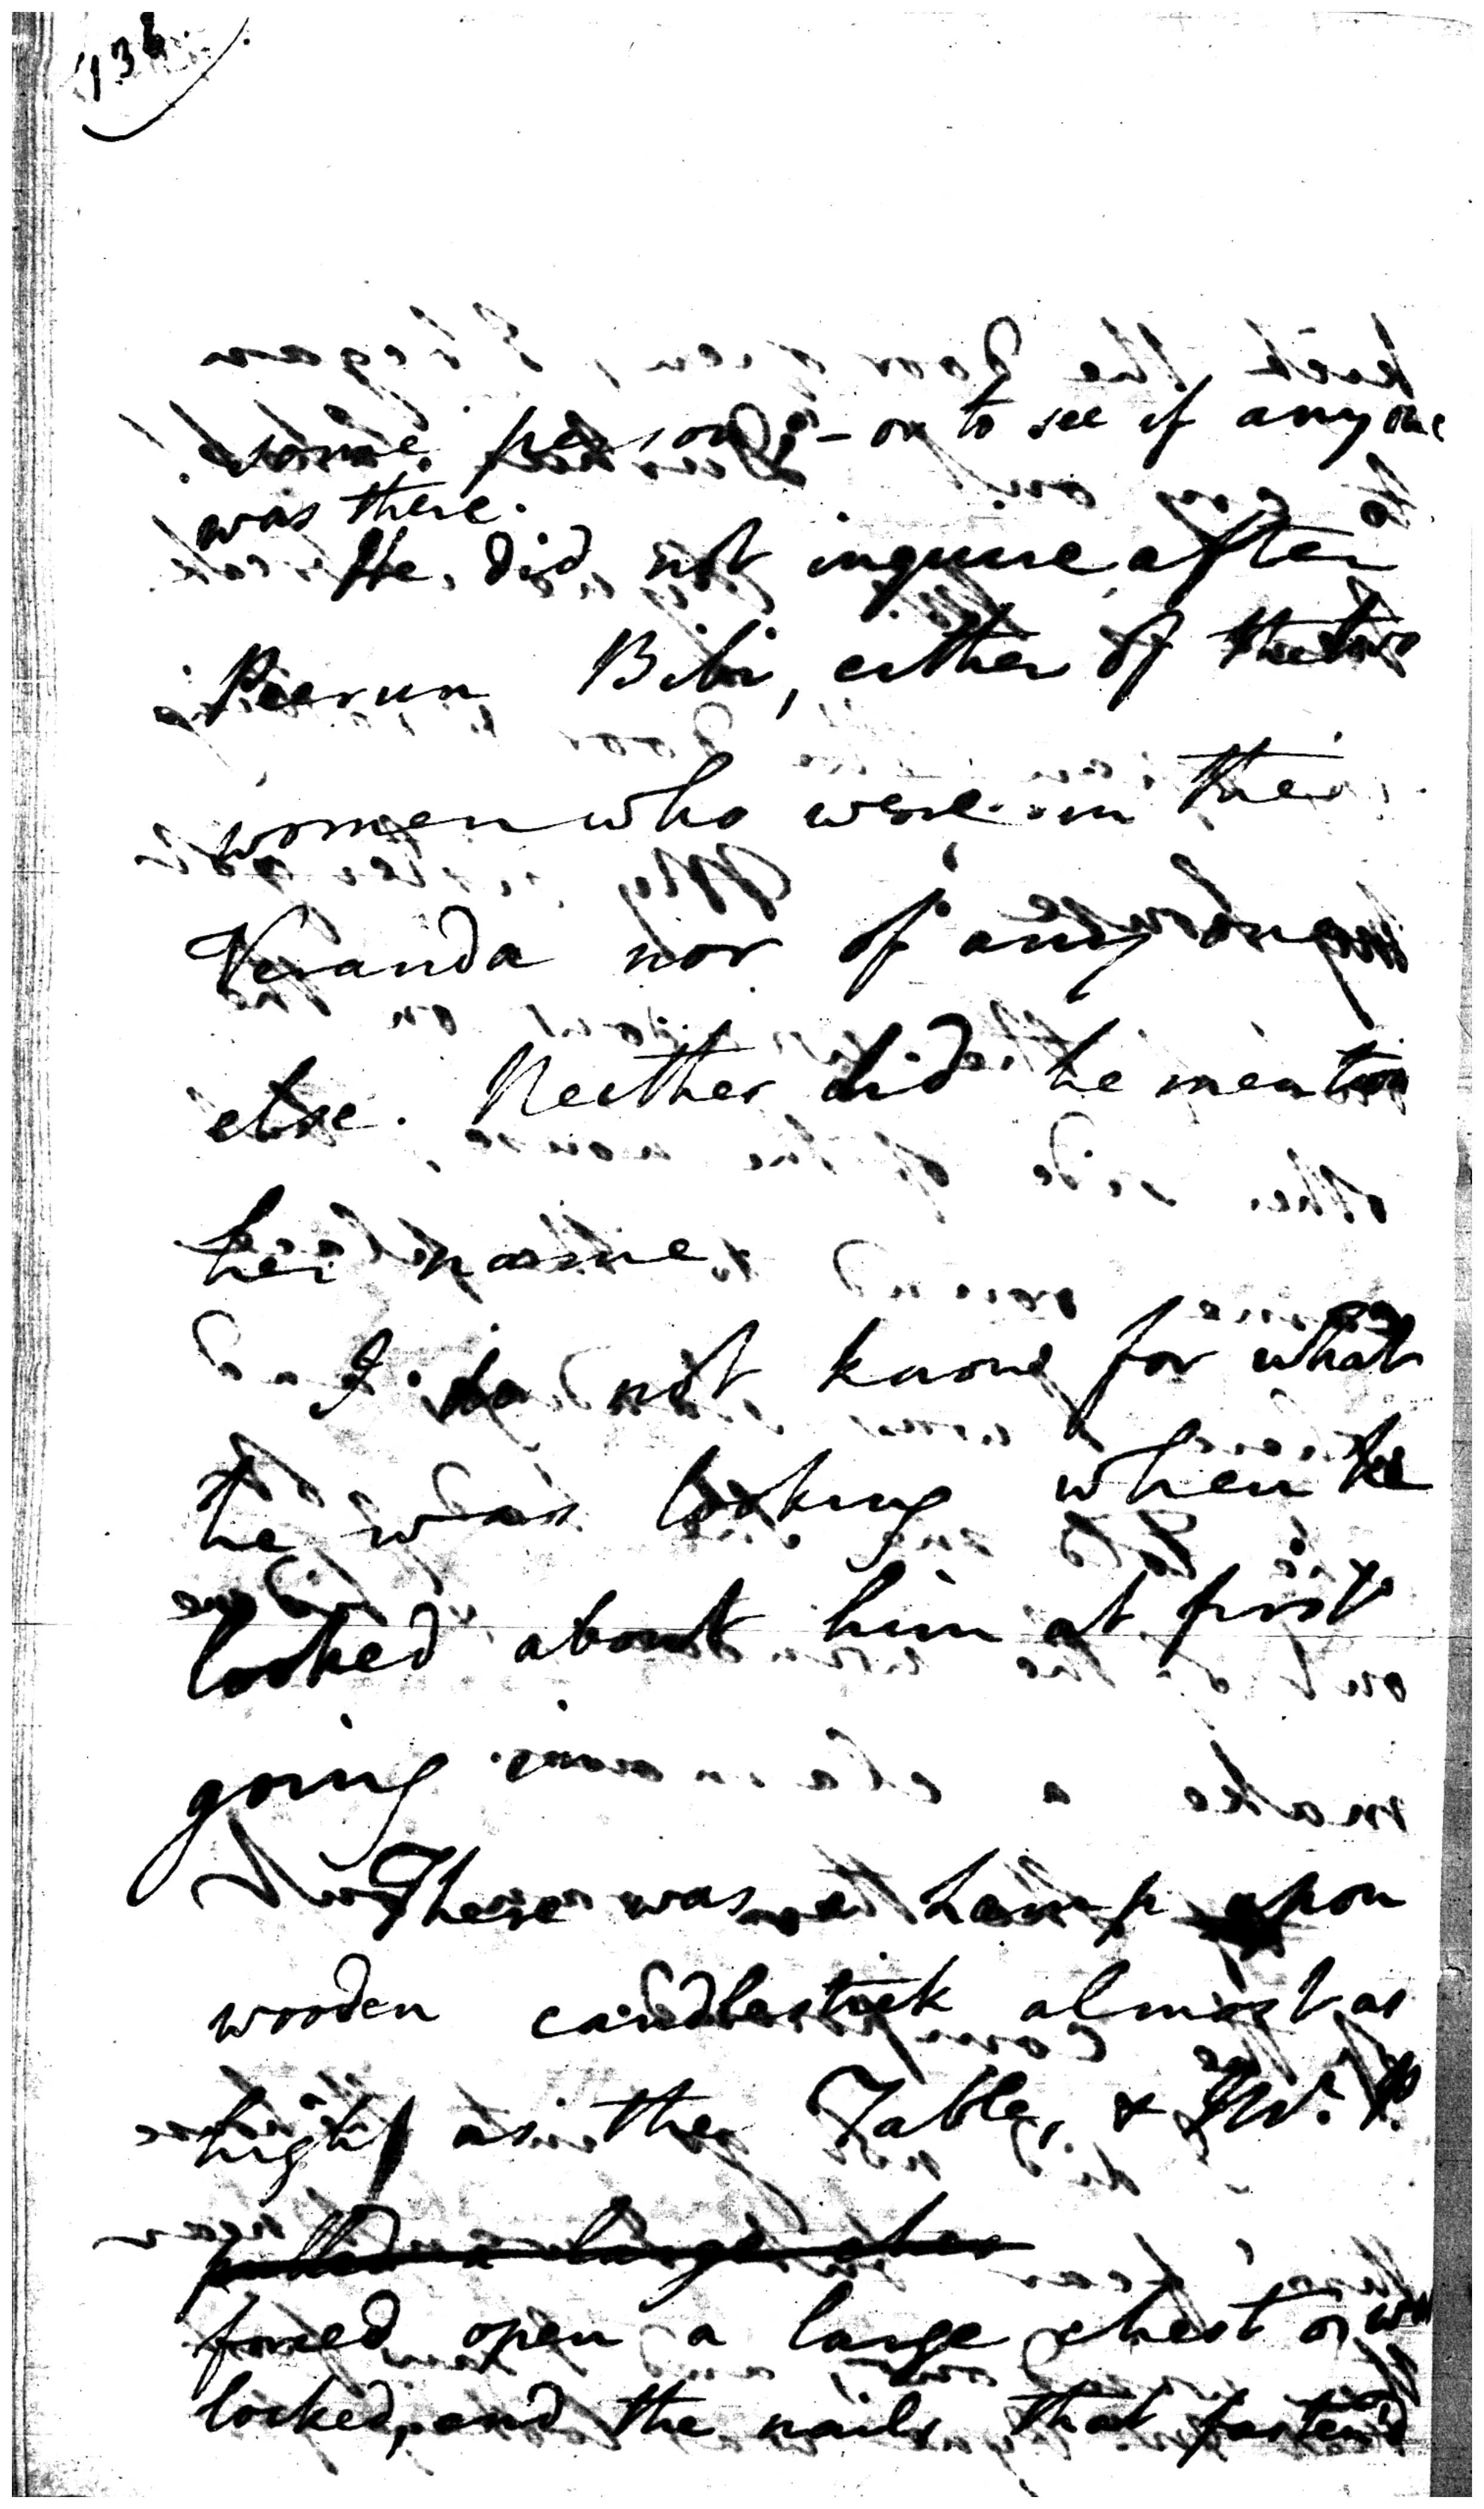 136
some person; - or to see if any one
was there.
He did not inquire after
Peerun Bibi, either of the two
women who were in the
Veranda nor of any one
else. Neither did he mention
her name.
I do not know for what
he was looking when he
looked about him at first
going
There was a lamp upon
wooden candlestick almost as
high as the Table, &
pulled a large ches
forced open a large chest or was
locked, and the nails that fasten'd